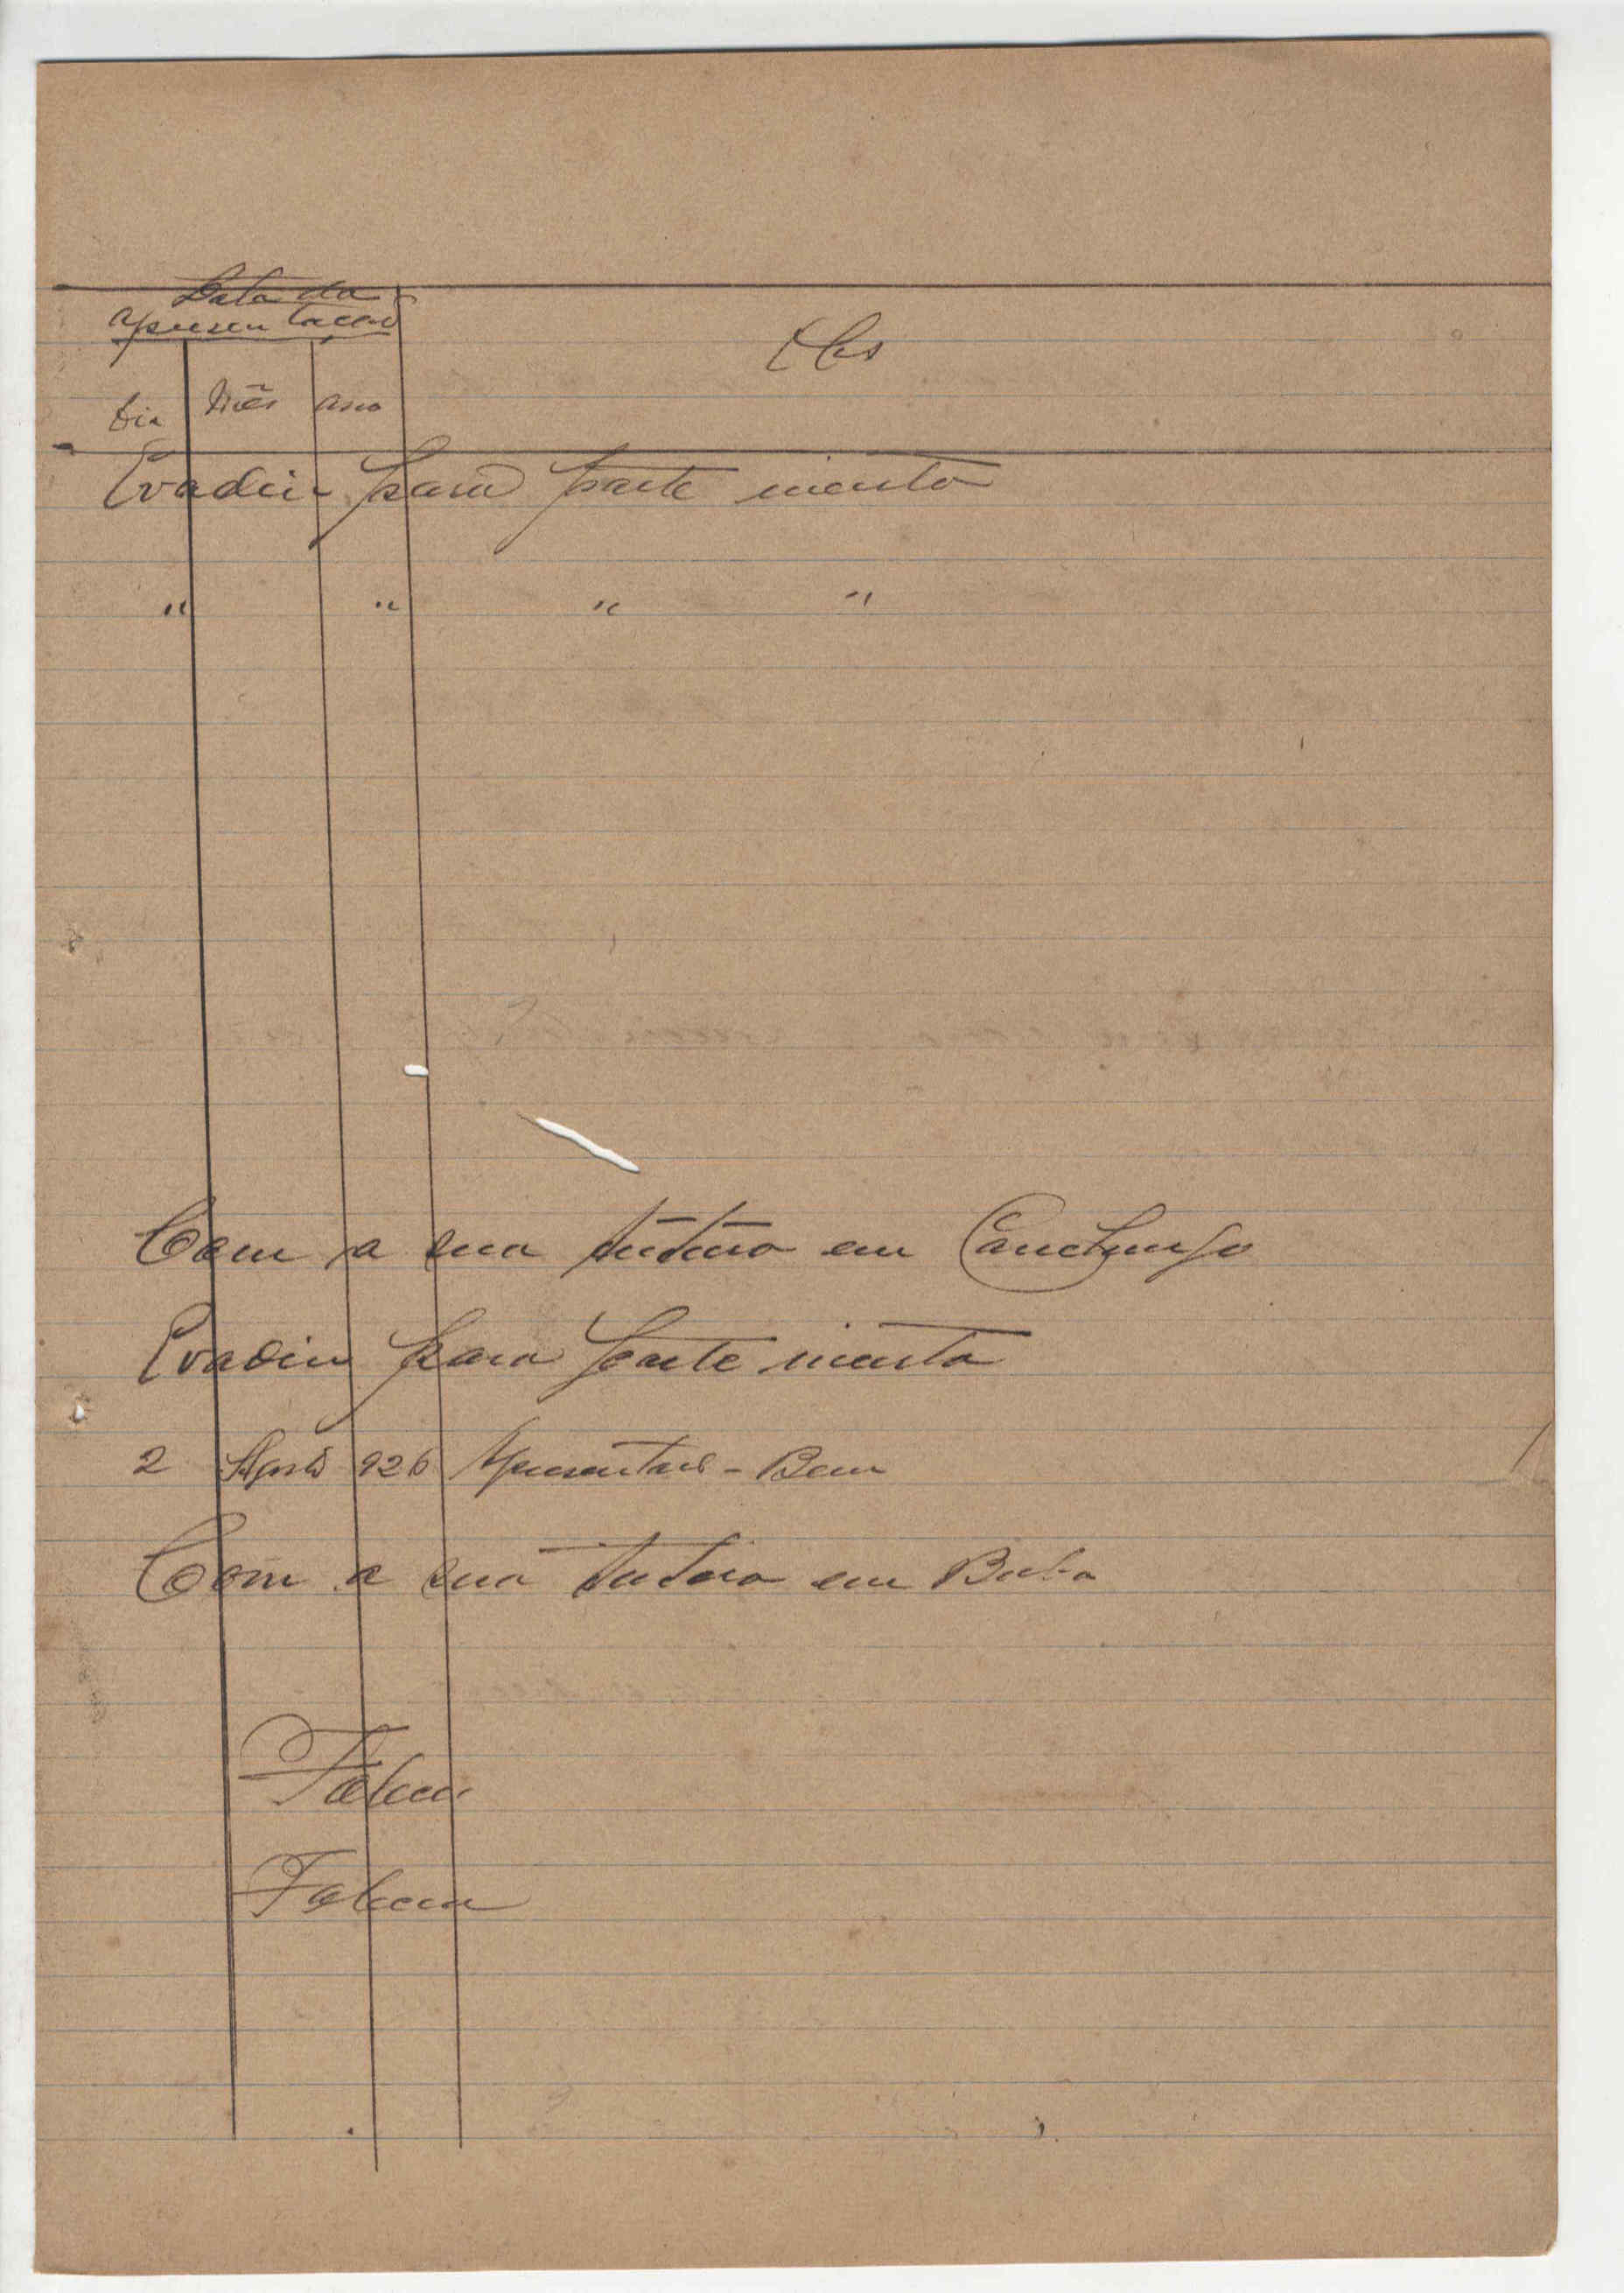 Data da
apresentação
Obs
Dia Mês ano
Evadiu para parte incerta
" " " "
Com a sua tutora em Canchungo
Evadiu para parte incerta
2 Agosto 926 Apresentado - Bem
Com a sua tutora em Buba
Faleceu
Faleceu